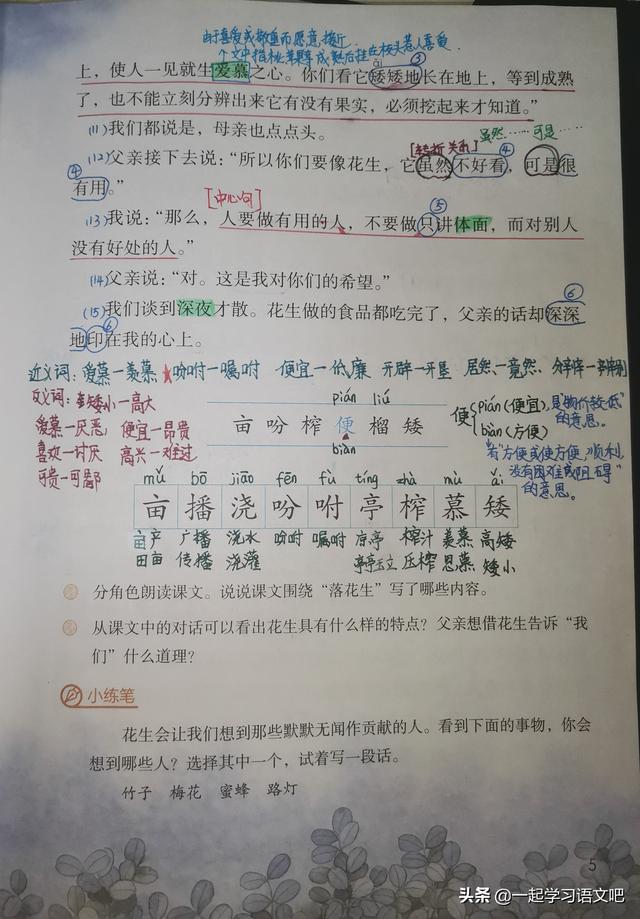 由于喜爱或敬重而愿意接近
文中指桃等果实成熟后挂在枝头惹人喜爱
③
上，使人一见就生爱慕之心。你们看它矮矮地长在地上，等到成熟
ǎi
了，也不能立刻分辨出来它有没有果实，必须挖起来才知道。”
(11)我们都说是，母亲也点点头。
[转折关系] 虽然……可是……
(12)父亲接下去说：“所以你们要像花生，它虽然不好看，可是很
④ ④
有用。”
[中心句] ⑤
(13)我说：“那么，人要做有用的人，不要做只讲体面，而对别人
没有好处的人。”
(14)父亲说：“对。这是我对你们的希望。”
(15)我们谈到深夜才散。花生做的食品都吃完了，父亲的话却深深
⑥ ⑥
地印在我的心上。
近义词：爱慕—羡慕 吩咐—嘱咐 便宜—低廉 开辟—开垦 居然—竟然 分辨—辨别
反义词：矮小—高大
爱慕—厌恶 便宜—昂贵
喜欢—讨厌 高兴—难过
可贵—可鄙
pián liú
亩 吩 咐 榨 便 榴 矮
biàn
便 pián(便宜)，是“物价较低”的意思。
biàn(方便)
有“方便或使方便，顺利，没有困难或阻碍”的意思。
mǔ bō jiāo fēn fù tíng zhà mù ǎi
亩 播 浇 吩 咐 亭 榨 慕 矮
亩产 广播 浇水 吩咐 嘱咐 榨汁 羡慕 高矮
田亩 传播 浇灌 亭亭玉立 压榨 思慕 矮小
分角色朗读课文。说说课文围绕“落花生”写了哪些内容。
从课文中的对话可以看出花生具有什么样的特点？父亲想借花生告诉“我
们”什么道理？
小练笔
花生会让我们想到那些默默无闻作贡献的人。看到下面的事物，你会
想到哪些人？选择其中一个，试着写一段话。
竹子 梅花 蜜蜂 路灯
5
头条 @一起学习语文吧